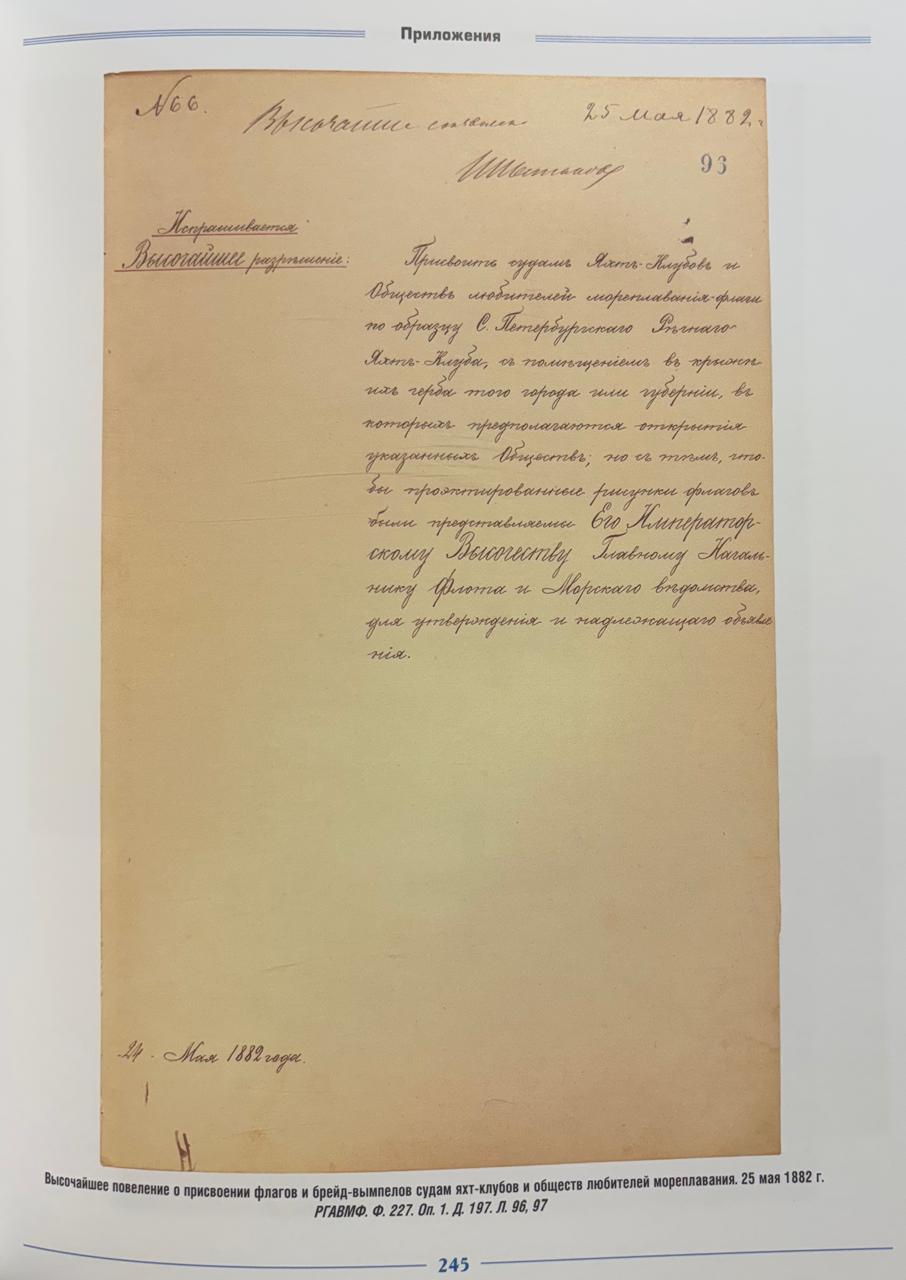 Приложения
№66.
Высочайше 25 мая 1882 г.
93
Испрашивается
Высочайшее разрѣшеніе:
Присвоить судамъ Яхтъ-Клубовъ и
Обществъ любителей мореплаванія флаги
по образцу С. Петербургскаго Рѣчнаго
Яхтъ-Клуба, съ помѣщеніемъ въ крыжѣ
ихъ герба того города или губерніи, въ
которыхъ предполагаются открытія
указанныхъ Обществъ; но съ тѣмъ, что-
бы проэктированные рисунки флаговъ
были представляемы Его Император-
скому Высочеству Главному Началь-
нику Флота и Морскаго вѣдомства,
для утвержденія и надлежащаго объявле
нія.
24 Мая 1882 года.
Высочайшее повеление о присвоении флагов и брейд-вымпелов судам яхт-клубов и обществ любителей мореплавания. 25 мая 1882 г.
РГАВМФ. Ф. 227. Оп. 1. Д. 197. Л. 96, 97
245